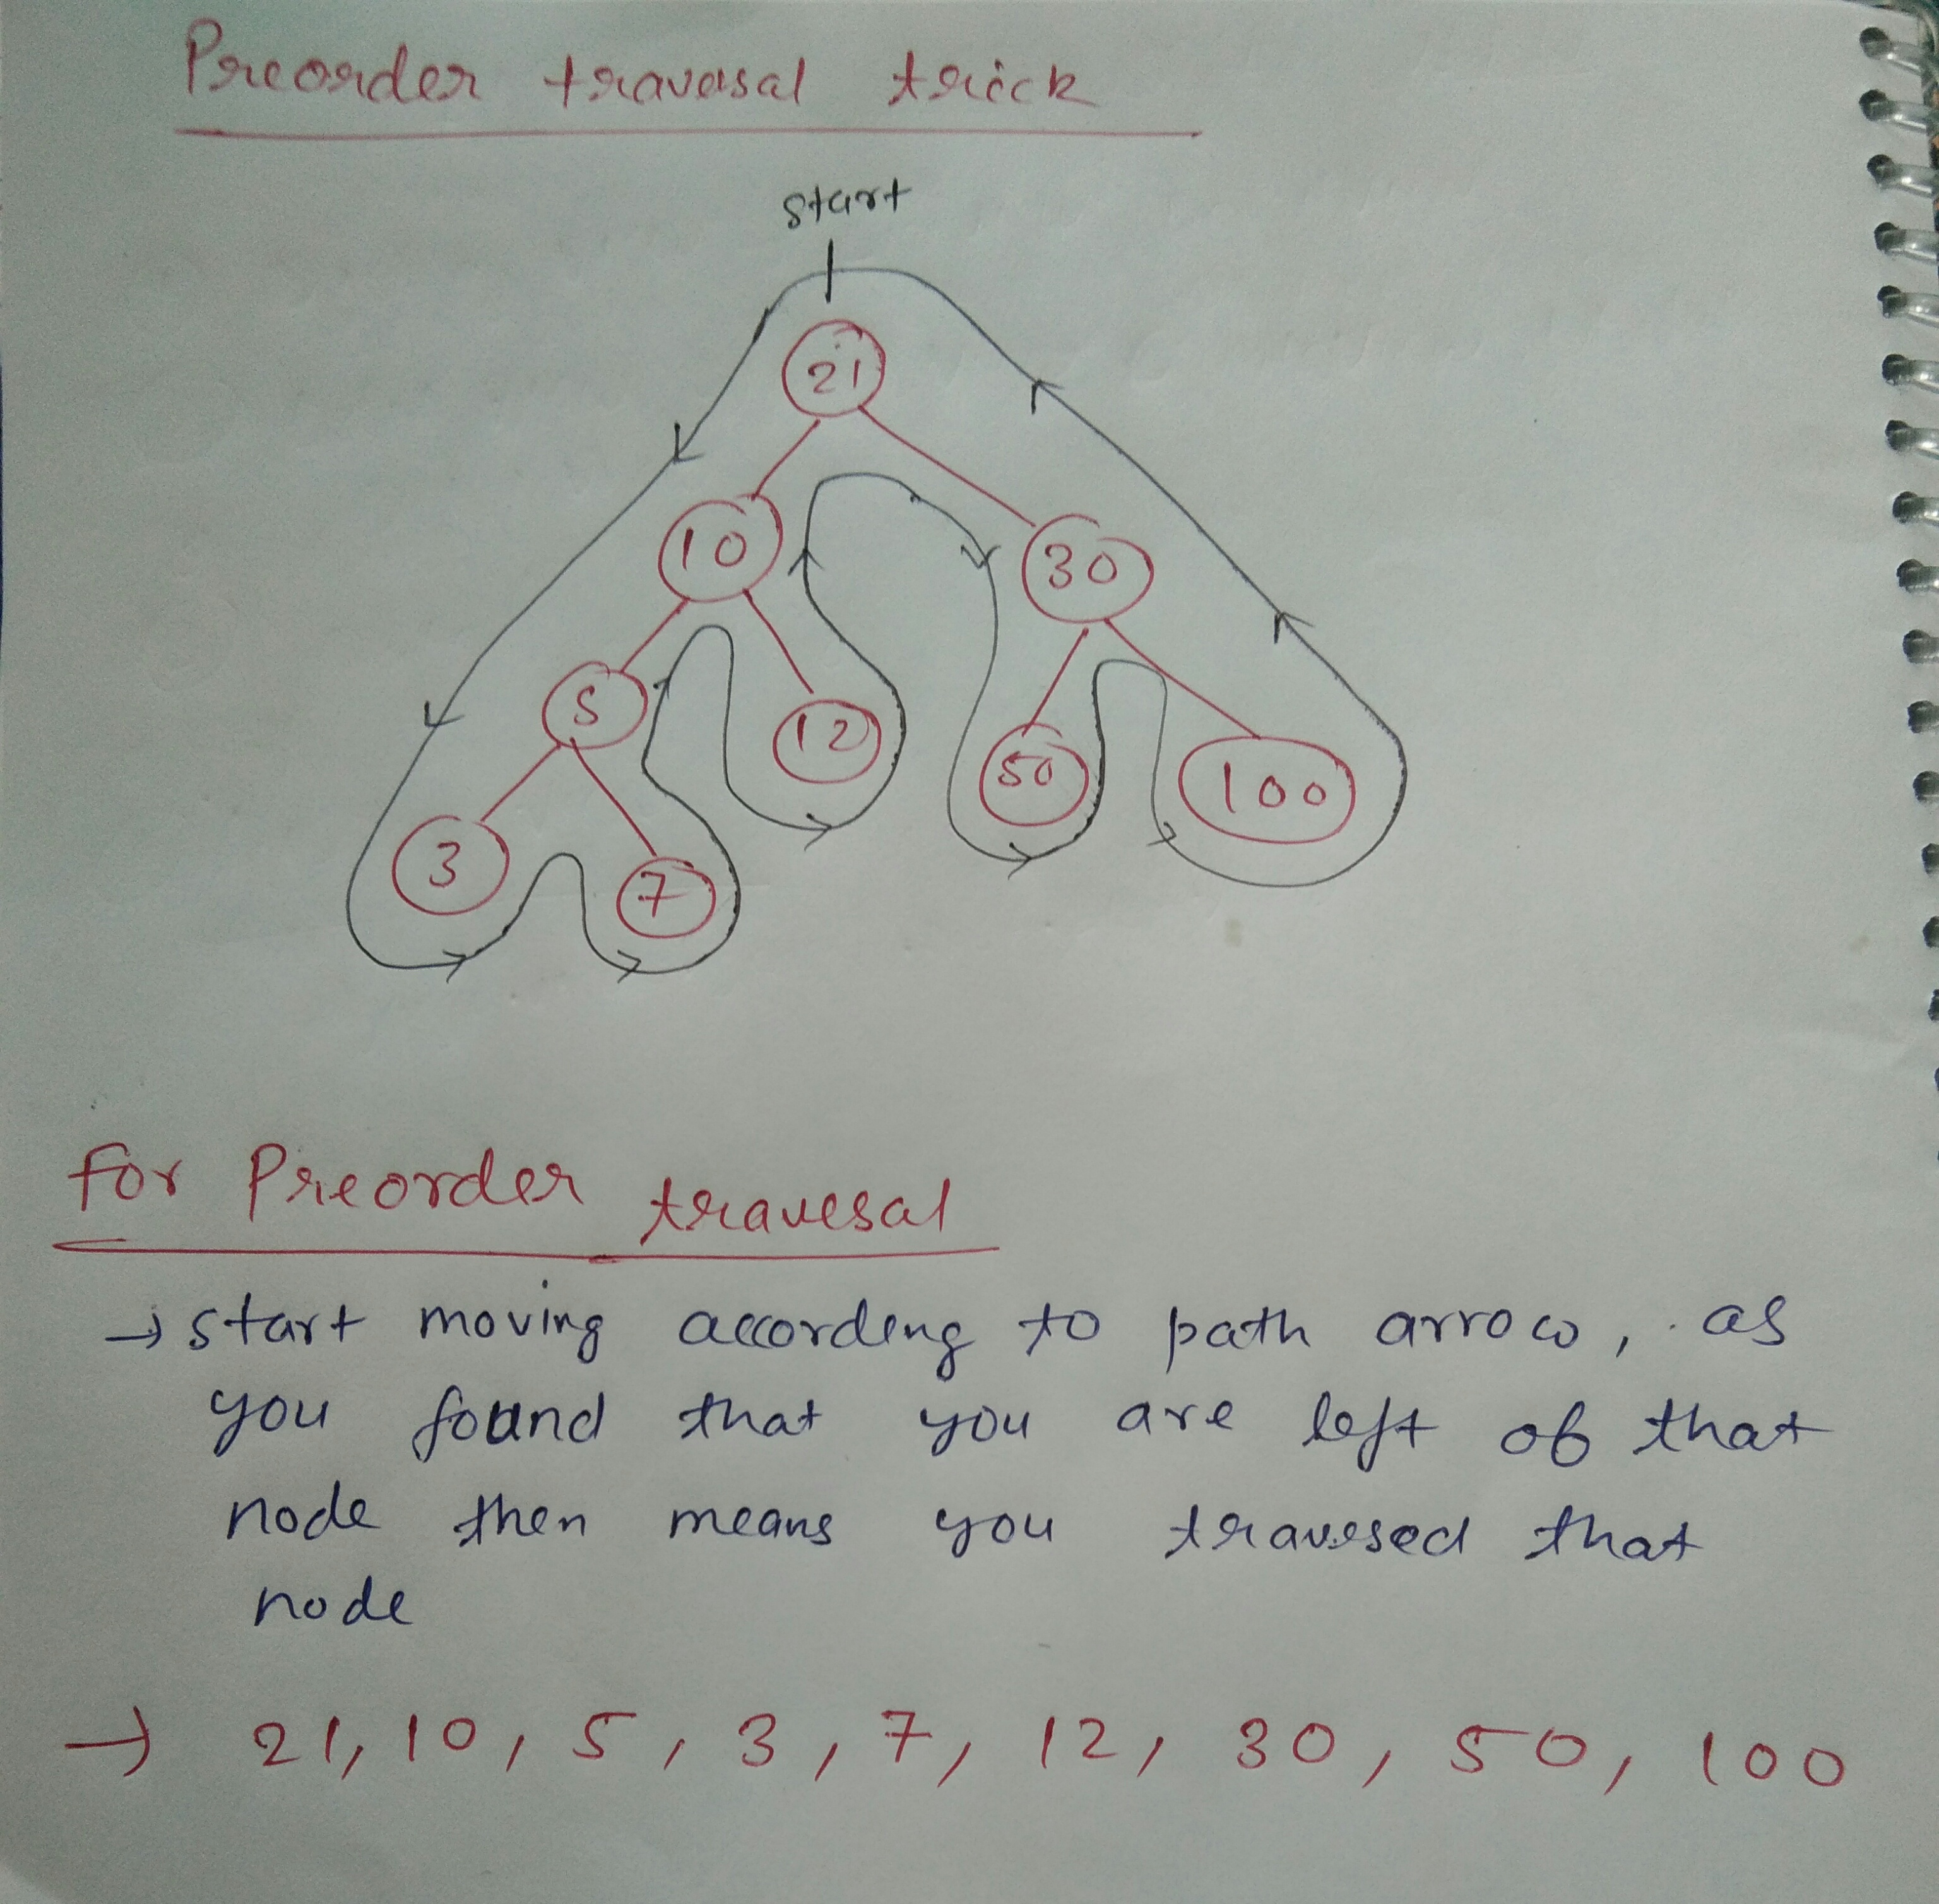 Preorder traversal trick
start
21
10
30
5
12
50
100
3
7
for Preorder travesal
→ start moving according to path arrow, as
you found that you are left of that
node then means you travesed that
node
→ 21, 10, 5, 3, 7, 12, 30, 50, 100